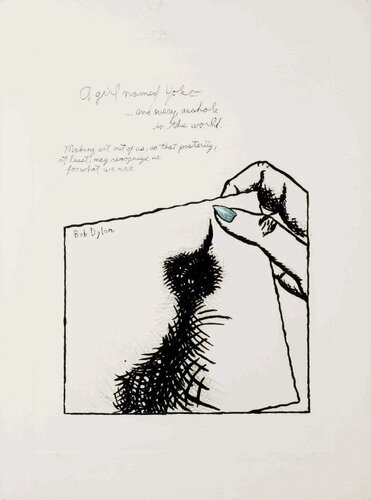 A girl named Yoko.
...and every asshole
in the world.
Making art out of us, so that posterity,
at least, may recognize us
for what we are
Bob Dylan.